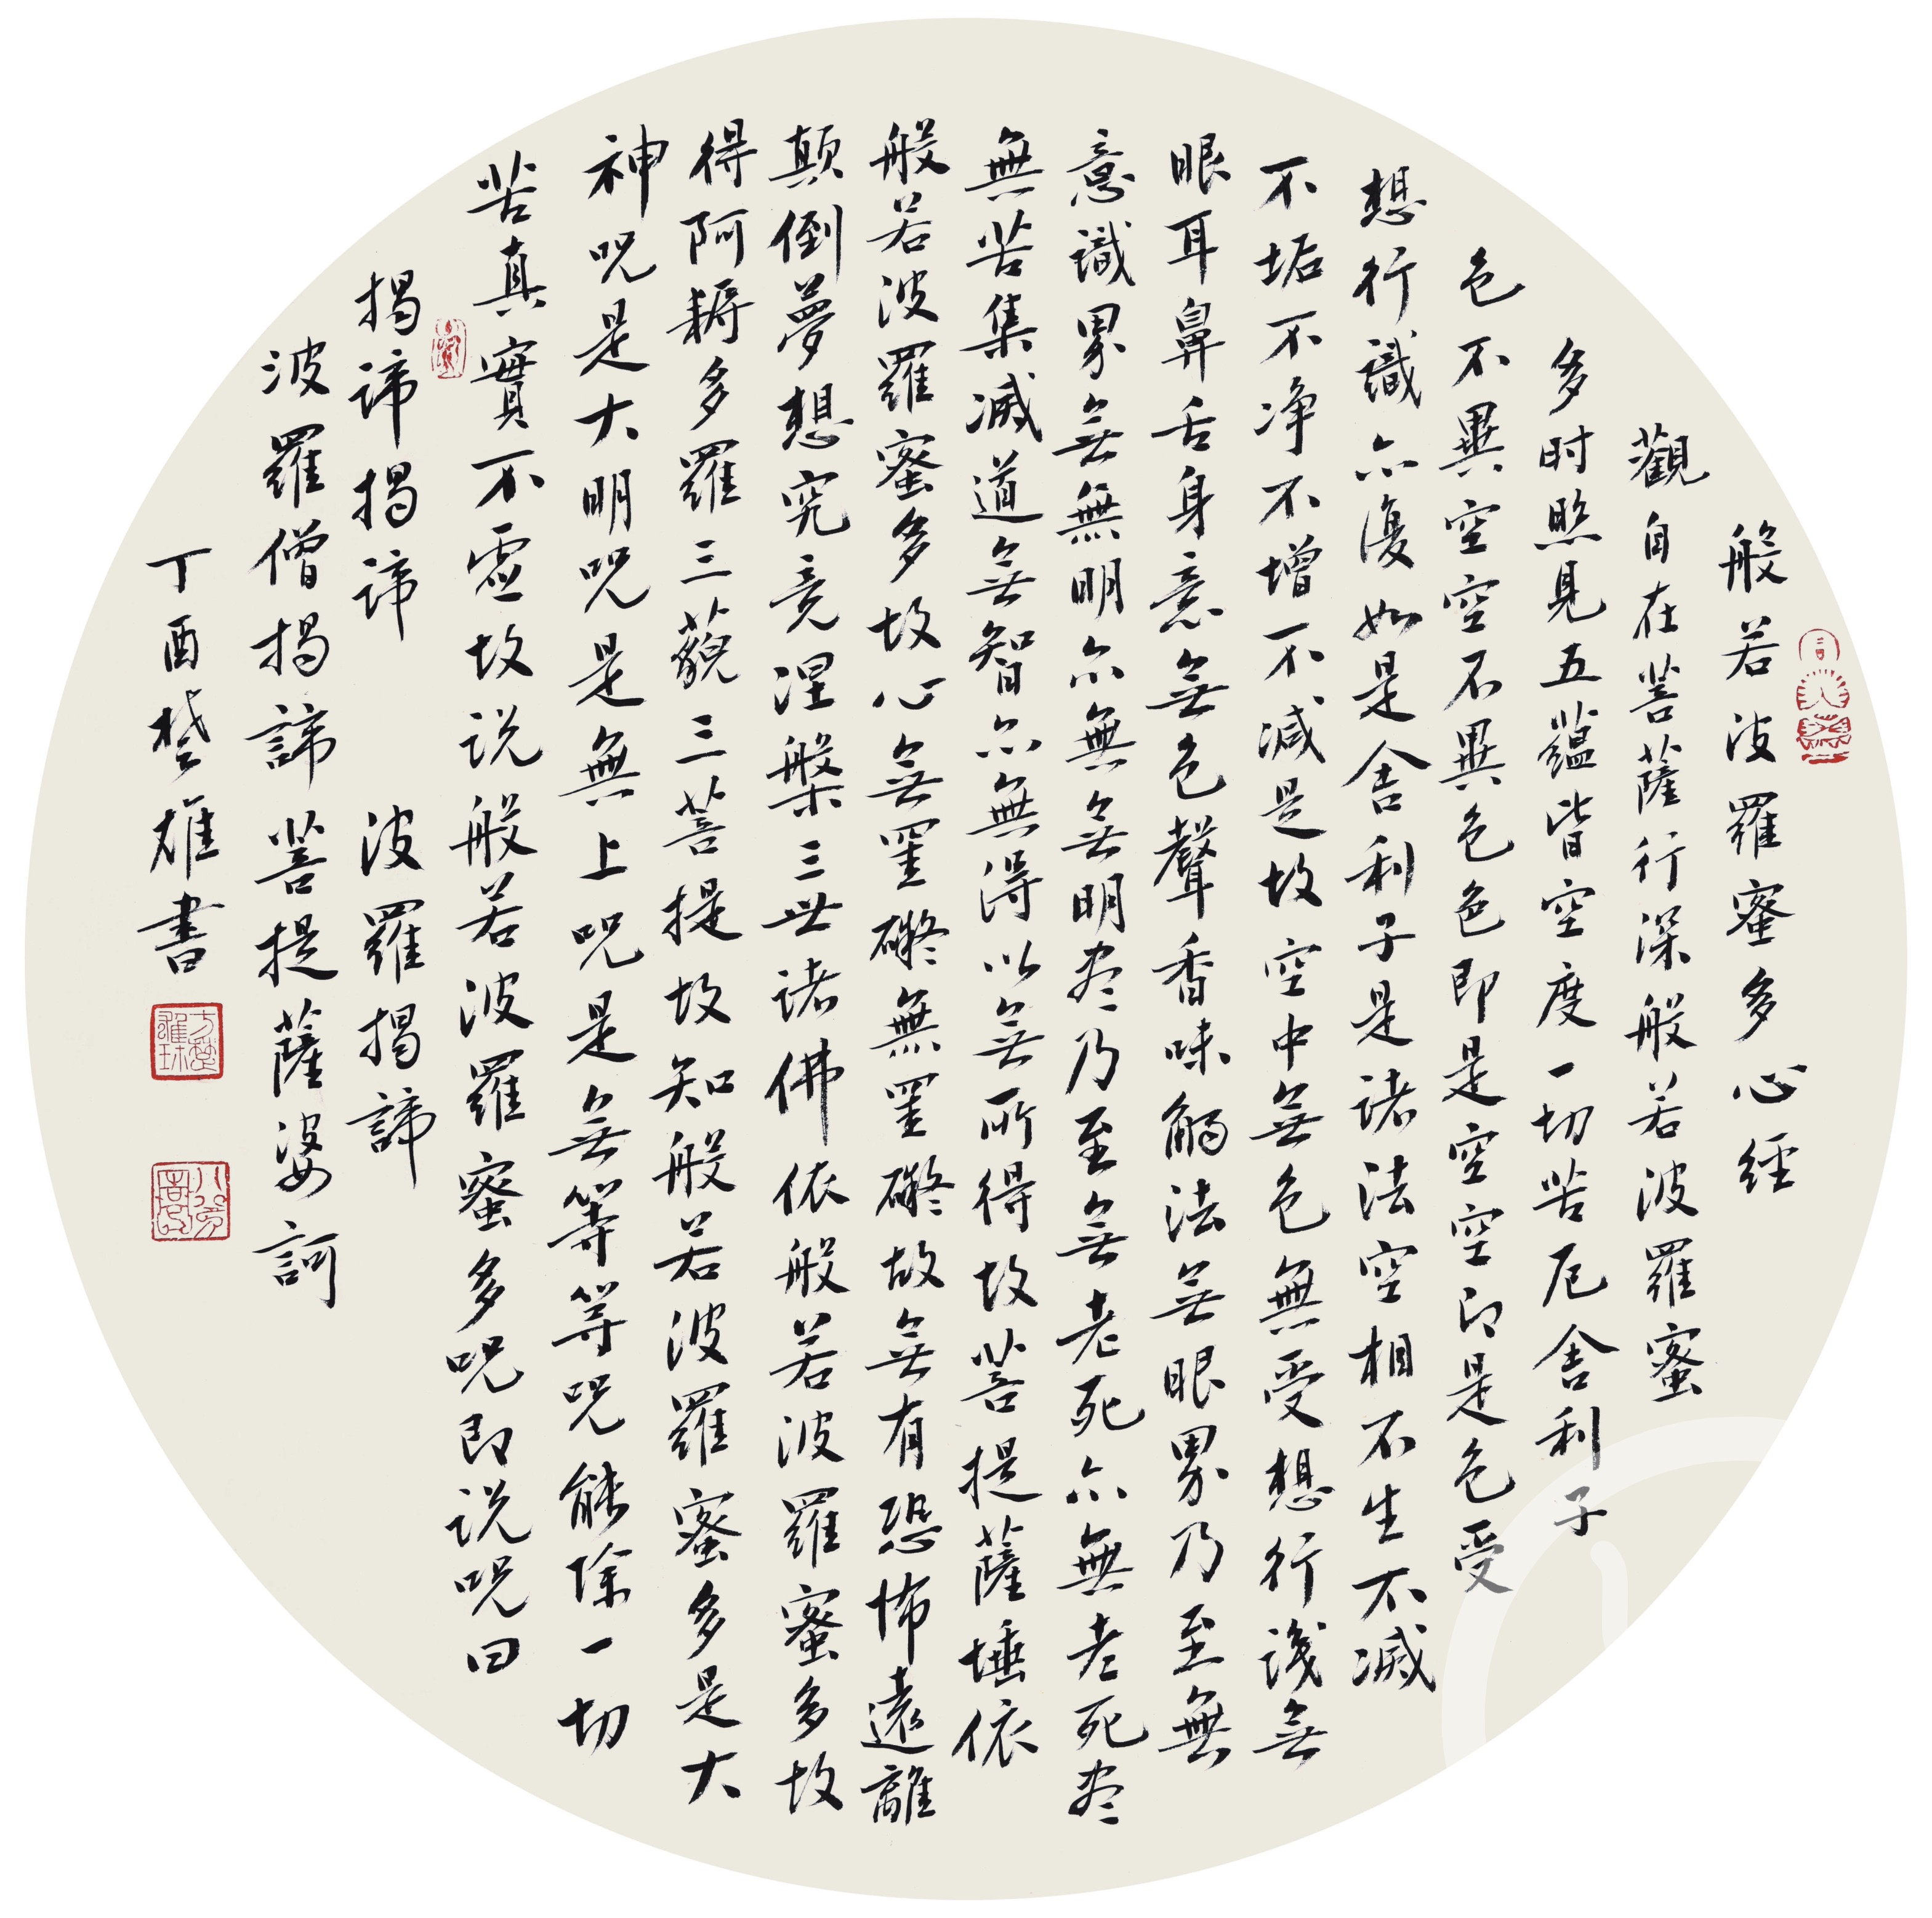 般若波羅蜜多心經
觀自在菩薩行深般若波羅蜜
多时照見五蘊皆空度一切苦厄舍利子
色不異空空不異色色即是空空即是色受
想行識亦復如是舍利子是诸法空相不生不滅
不垢不净不增不减是故空中無色無受想行識無
眼耳鼻舌身意無色聲香味觸法無眼界乃至無
意識界無無明亦無無明尽乃至無老死亦無老死尽
無苦集滅道無智亦無得以無所得故菩提薩埵依
般若波羅蜜多故心無罣礙無罣礙故無有恐怖遠離
顛倒夢想究竟涅槃三世诸佛依般若波羅蜜多故
得阿耨多羅三藐三菩提故知般若波羅蜜多是大
神咒是大明咒是無上咒是無等等咒能除一切
苦真實不虛故说般若波羅蜜多咒即说咒曰
揭諦揭諦 波羅揭諦
波羅僧揭諦菩提薩婆訶
丁酉楚雄書